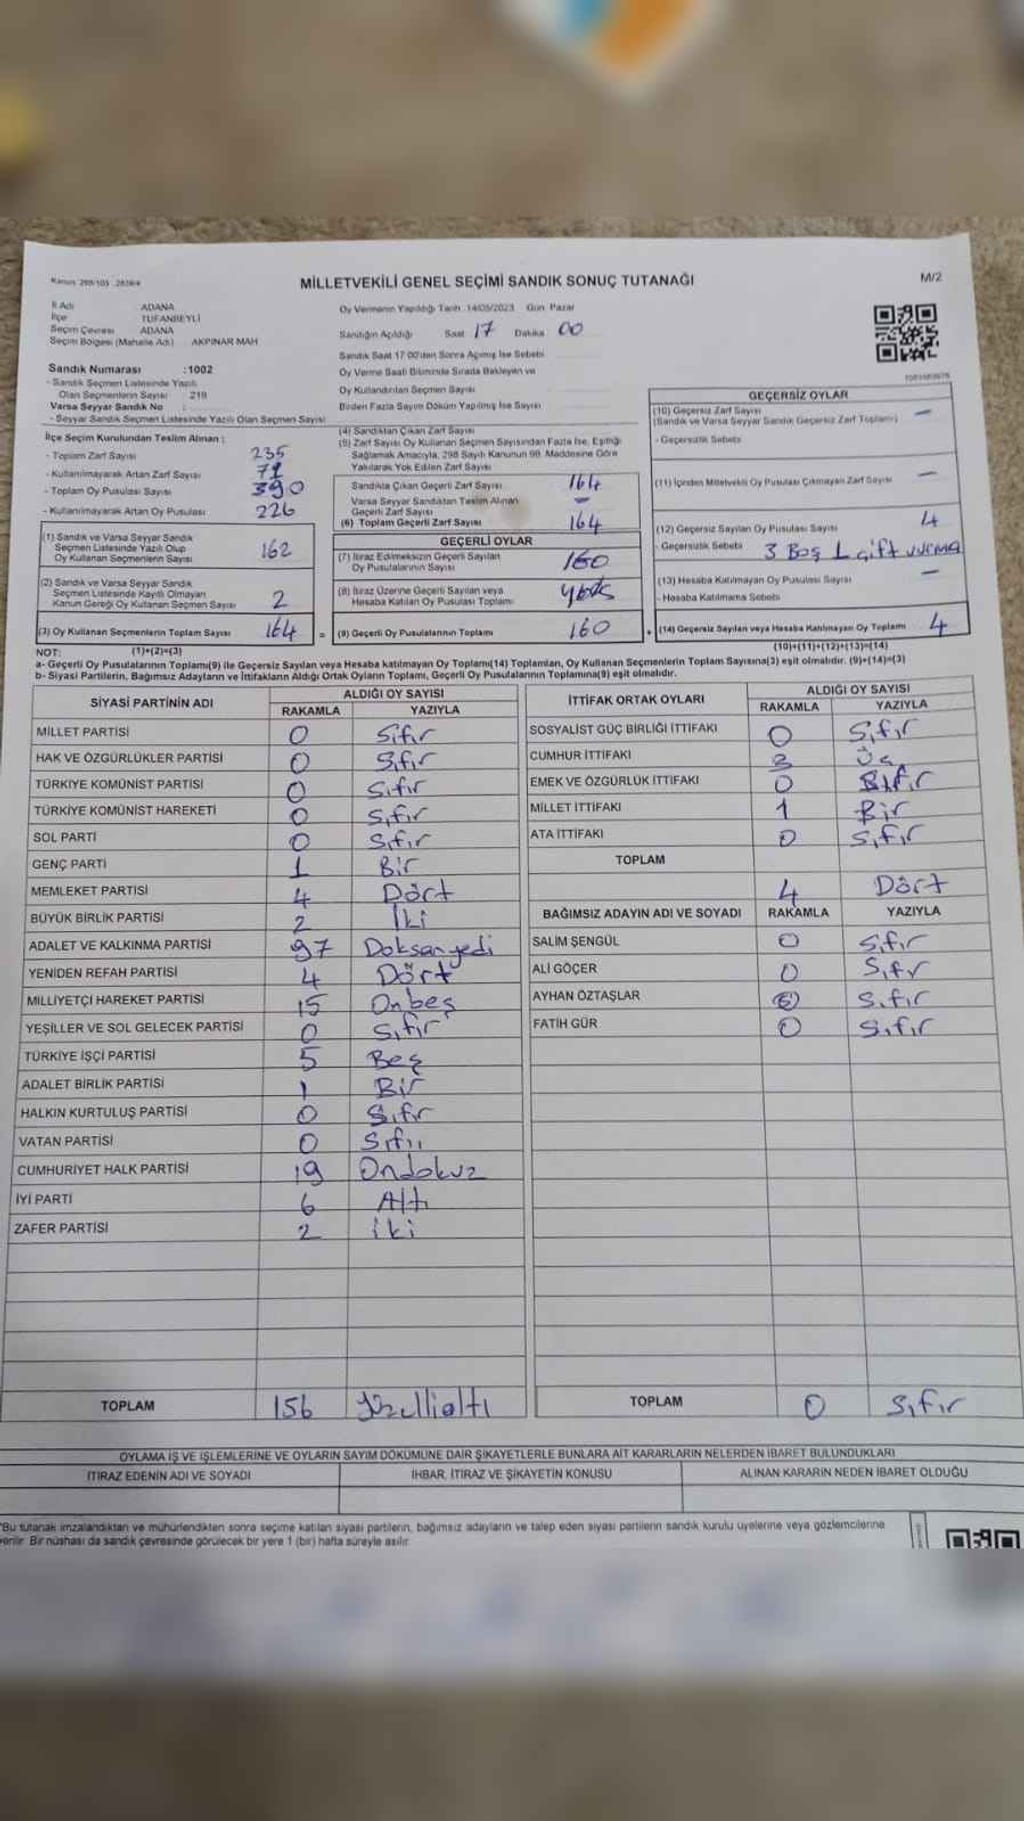 MİLLETVEKİLİ GENEL SEÇİMİ SANDIK SONUÇ TUTANAĞI
M/2
İl Adı ADANA
İlçe TUFANBEYLİ
Seçim Çevresi ADANA
Seçim Bölgesi (Mahalle Adı) AKPINAR MAH
Sandık Numarası :1002
- Sandık Seçmen Listesinde Yazılı
Olan Seçmenlerin Sayısı 219
Varsa Seyyar Sandık No :
- Seyyar Sandık Seçmen Listesinde Yazılı Olan Seçmen Sayısı
Oy Vermenin Yapıldığı Tarih 14/05/2023 Gün Pazar
Sandığın Açıldığı Saat 17 Dakika 00
Sandık Saat 17 00'den Sonra Açılmış İse Sebebi
Oy Verme Saati Bitiminde Sırada Bekleyen ve
Oy Kullandırılan Seçmen Sayısı
Birden Fazla Sayım Döküm Yapılmış İse Sayısı
İlçe Seçim Kurulundan Teslim Alınan :
- Toplam Zarf Sayısı 235
- Kullanılmayarak Artan Zarf Sayısı 71
- Toplam Oy Pusulası Sayısı 390
- Kullanılmayarak Artan Oy Pusulası 226
(1) Sandık ve Varsa Seyyar Sandık
Seçmen Listesinde Yazılı Olup
Oy Kullanan Seçmenlerin Sayısı 162
(2) Sandık ve Varsa Seyyar Sandık
Seçmen Listesinde Kayıtlı Olmayan
Kanun Gereği Oy Kullanan Seçmen Sayısı 2
(3) Oy Kullanan Seçmenlerin Toplam Sayısı 164 =
(4) Sandıktan Çıkan Zarf Sayısı
(5) Zarf Sayısı Oy Kullanan Seçmen Sayısından Fazla İse, Eşitliği
Sağlamak Amacıyla, 298 Sayılı Kanunun 98. Maddesine Göre
Yakılarak Yok Edilen Zarf Sayısı
Sandıkta Çıkan Geçerli Zarf Sayısı 164
Varsa Seyyar Sandıktan Teslim Alınan
Geçerli Zarf Sayısı –
(6) Toplam Geçerli Zarf Sayısı 164
GEÇERLİ OYLAR
(7) İtiraz Edilmeksizin Geçerli Sayılan
Oy Pusulalarının Sayısı 160
(8) İtiraz Üzerine Geçerli Sayılan veya
Hesaba Katılan Oy Pusulası Toplamı
(9) Geçerli Oy Pusulalarının Toplamı 160 +
GEÇERSİZ OYLAR
(10) Geçersiz Zarf Sayısı –
(Sandık ve Varsa Seyyar Sandık Geçersiz Zarf Toplamı)
- Geçersizlik Sebebi
(11) İçinden Milletvekili Oy Pusulası Çıkmayan Zarf Sayısı –
(12) Geçersiz Sayılan Oy Pusulası Sayısı 4
- Geçersizlik Sebebi 3 Boş 1 çift vurma
(13) Hesaba Katılmayan Oy Pusulası Sayısı –
- Hesaba Katılmama Sebebi
(14) Geçersiz Sayılan veya Hesaba Katılmayan Oy Toplamı 4
NOT: (1)+(2)=(3) (10)+(11)+(12)+(13)=(14)
a- Geçerli Oy Pusulalarının Toplamı(9) ile Geçersiz Sayılan veya Hesaba katılmayan Oy Toplamı(14) Toplamları, Oy Kullanan Seçmenlerin Toplam Sayısına(3) eşit olmalıdır. (9)+(14)=(3)
b- Siyasi Partilerin, Bağımsız Adayların ve İttifakların Aldığı Oyların Toplamı, Geçerli Oy Pusulalarının Toplamına(9) eşit olmalıdır.
SİYASİ PARTİNİN ADI ALDIĞI OY SAYISI
RAKAMLA YAZIYLA
MİLLET PARTİSİ 0 Sıfır
HAK VE ÖZGÜRLÜKLER PARTİSİ 0 Sıfır
TÜRKİYE KOMÜNİST PARTİSİ 0 Sıfır
TÜRKİYE KOMÜNİST HAREKETİ 0 Sıfır
SOL PARTİ 0 Sıfır
GENÇ PARTİ 1 Bir
MEMLEKET PARTİSİ 4 Dört
BÜYÜK BİRLİK PARTİSİ 2 İki
ADALET VE KALKINMA PARTİSİ 97 Doksanyedi
YENİDEN REFAH PARTİSİ 4 Dört
MİLLİYETÇİ HAREKET PARTİSİ 15 Onbeş
YEŞİLLER VE SOL GELECEK PARTİSİ 0 Sıfır
TÜRKİYE İŞÇİ PARTİSİ 5 Beş
ADALET BİRLİK PARTİSİ 1 Bir
HALKIN KURTULUŞ PARTİSİ 0 Sıfır
VATAN PARTİSİ 0 Sıfır
CUMHURİYET HALK PARTİSİ 19 Ondokuz
İYİ PARTİ 6 Altı
ZAFER PARTİSİ 2 İki
TOPLAM 156 Yüzellialtı
İTTİFAK ORTAK OYLARI ALDIĞI OY SAYISI
RAKAMLA YAZIYLA
SOSYALİST GÜÇ BİRLİĞİ İTTİFAKI 0 Sıfır
CUMHUR İTTİFAKI 3 Üç
EMEK VE ÖZGÜRLÜK İTTİFAKI 0 Sıfır
MİLLET İTTİFAKI 1 Bir
ATA İTTİFAKI 0 Sıfır
TOPLAM
4 Dört
BAĞIMSIZ ADAYIN ADI VE SOYADI RAKAMLA YAZIYLA
SALİM ŞENGÜL 0 Sıfır
ALİ GÖÇER 0 Sıfır
AYHAN ÖZTAŞLAR 0 Sıfır
FATİH GÜR 0 Sıfır
TOPLAM 0 Sıfır
OYLAMA İŞ VE İŞLEMLERİNE VE OYLARIN SAYIM DÖKÜMÜNE DAİR ŞİKAYETLERLE BUNLARA AİT KARARLARIN NELERDEN İBARET BULUNDUKLARI
İTİRAZ EDENİN ADI VE SOYADI İHBAR, İTİRAZ VE ŞİKAYETİN KONUSU ALINAN KARARIN NEDEN İBARET OLDUĞU
*Bu tutanak imzalandıktan ve mühürlendikten sonra seçime katılan siyasi partilerin, bağımsız adayların ve talep eden siyasi partilerin sandık kurulu üyelerine veya gözlemcilerine
verilir. Bir nüshası da sandık çevresinde görülecek bir yere 1 (bir) hafta süreyle asılır